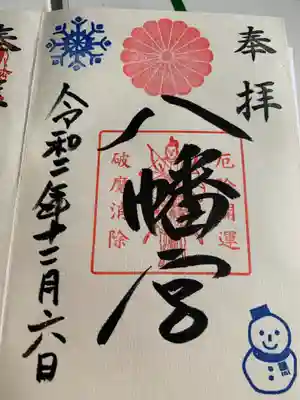 奉拝
厄除開運
八幡宮
破魔消除
令和二年十二月六日